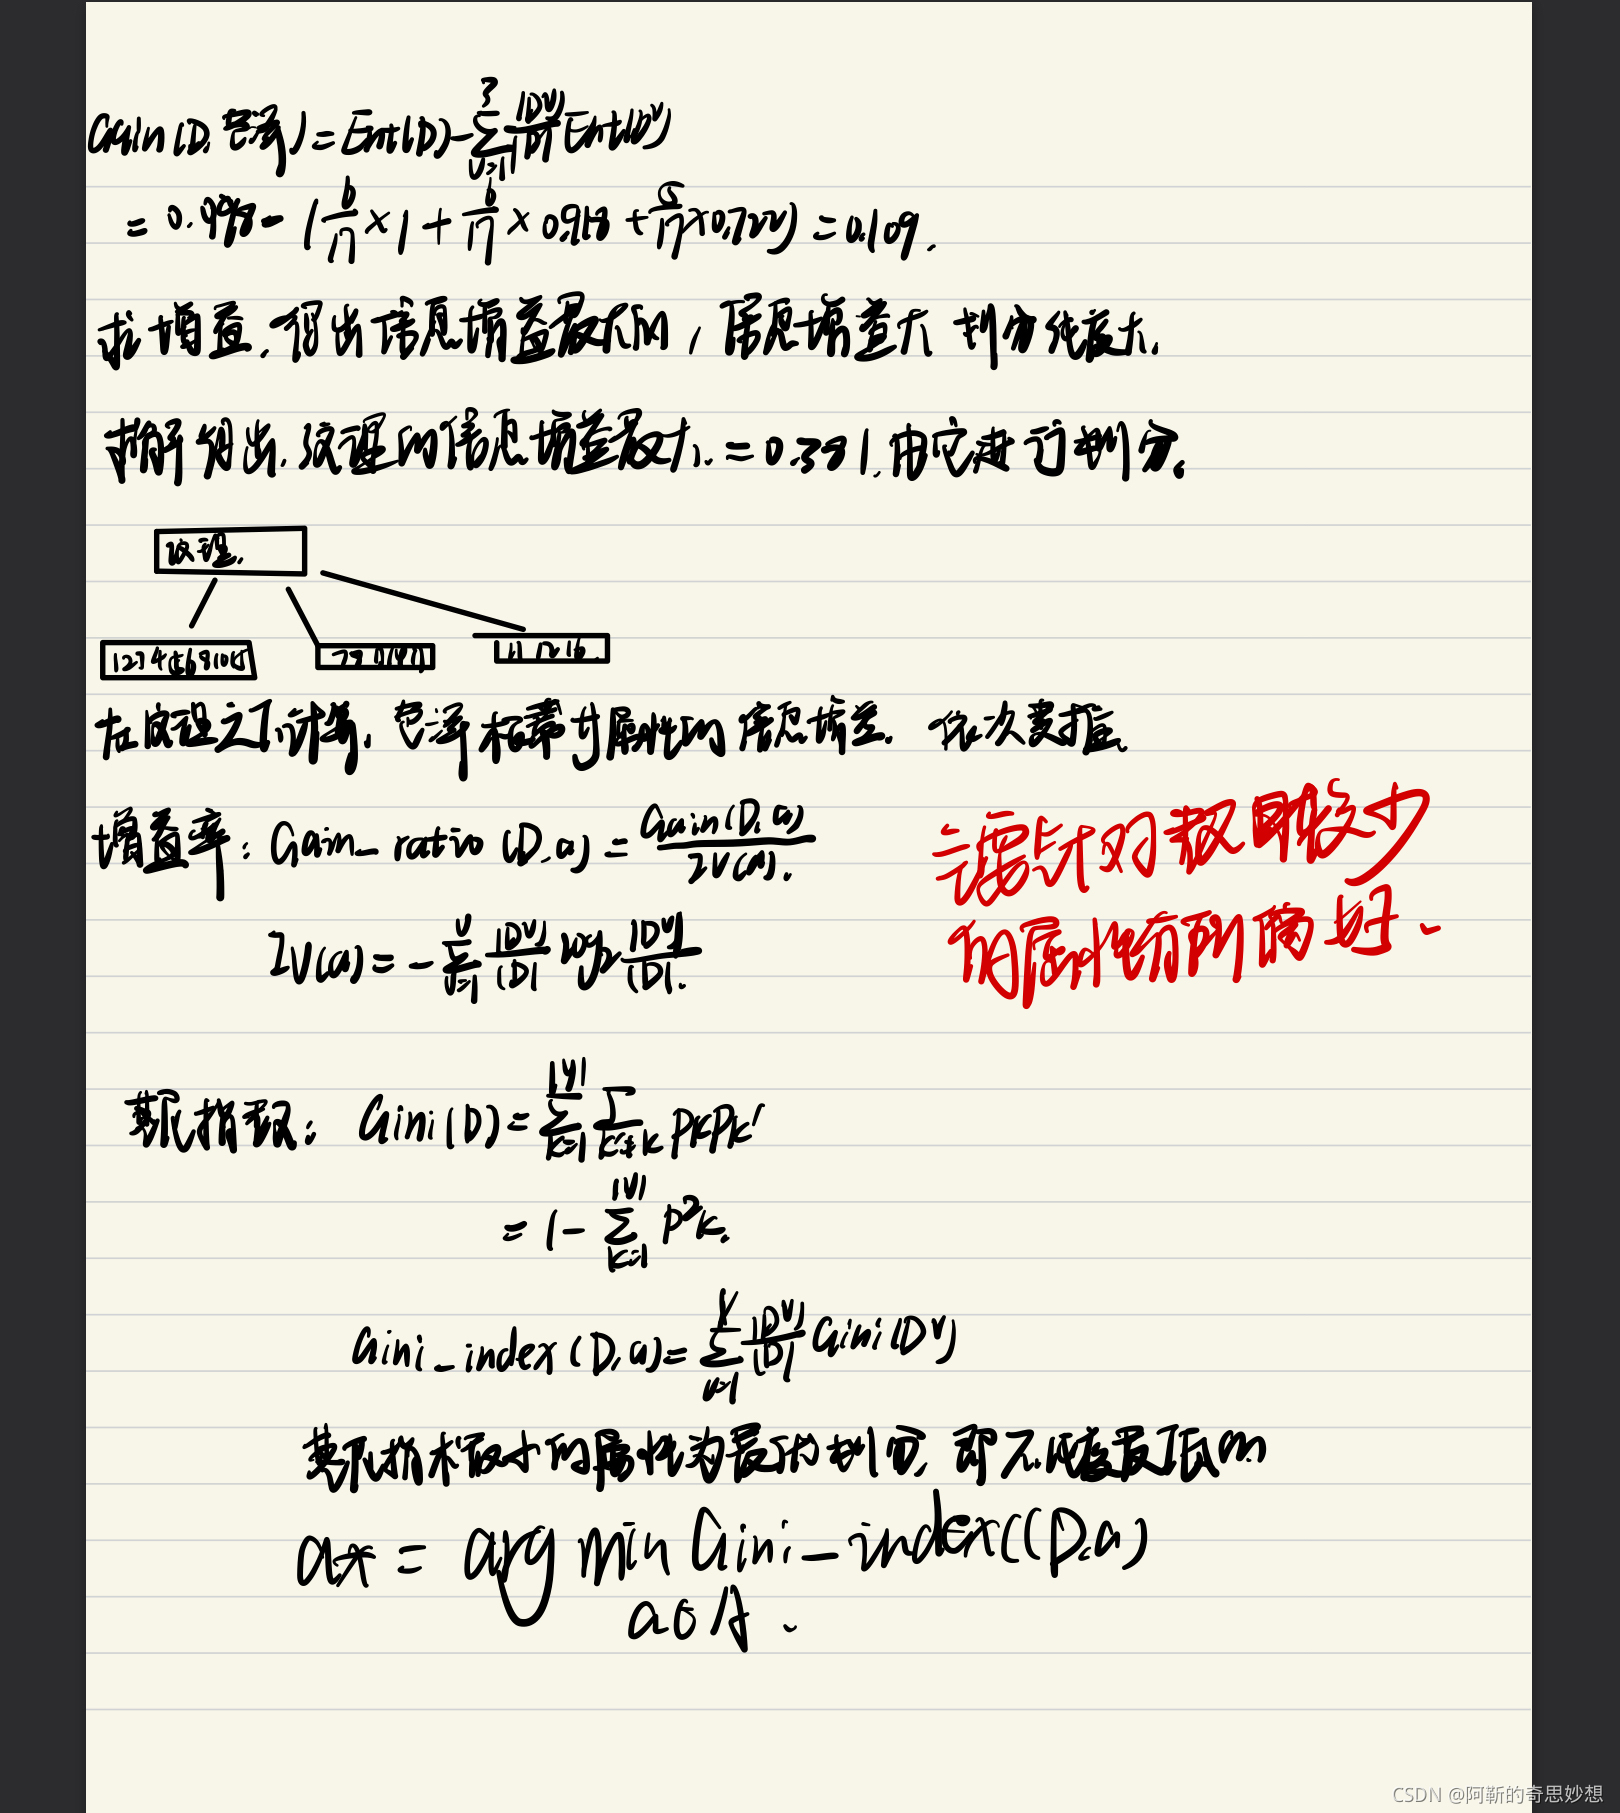 Gain(D,色泽)=Ent(D)-∑_{v=1}^{3} |D^v|/|D| Ent(D^v)
=0.998-(6/17×1+6/17×0.918+5/17×0.722)=0.109.
求增益,得出信息增益最大的,信息增益大 划分纯度大.
求解得出,纹理的信息增益最大.=0.381,由它进行划分。
纹理.
12345681015 11 12 16
在纹理之下,计算,色泽 根蒂 等属性的信息增益. 依次类推
增益率: Gain_ratio(D,a)=Gain(D,a)/IV(a).
主要针对数目较少
的属性有所偏好.
IV(a)=-∑_{v=1}^{V} |D^v|/|D| log₂ |D^v|/|D|.
基尼指数: Gini(D)=∑_{k=1}^{|y|} ∑_{k'≠k} pkpk'
=1-∑_{k=1}^{|y|} p²k.
Gini_index(D,a)=∑_{v=1}^{V} |D^v|/|D| Gini(D^v)
基尼指数最小的属性为最优划分,即不纯度最低的
a* = arg min Gini_index((D,a)
a∈A.
CSDN @阿靳的奇思妙想